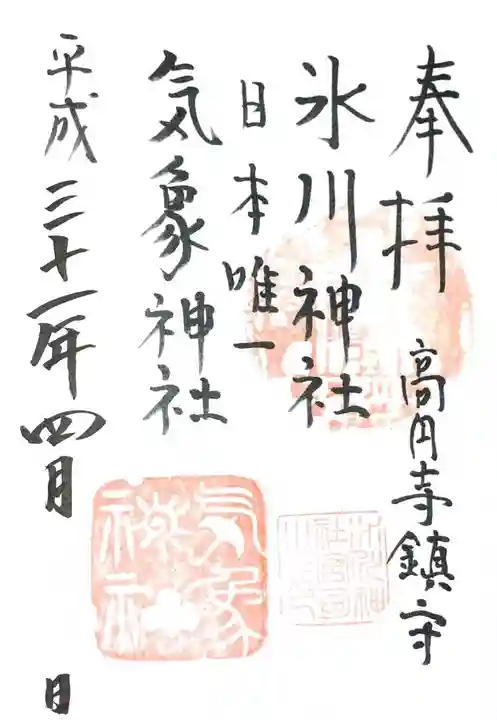 奉拝
高円寺鎮守
氷川神社
日本唯一
気象神社
平成三十一年四月 日
気象神社